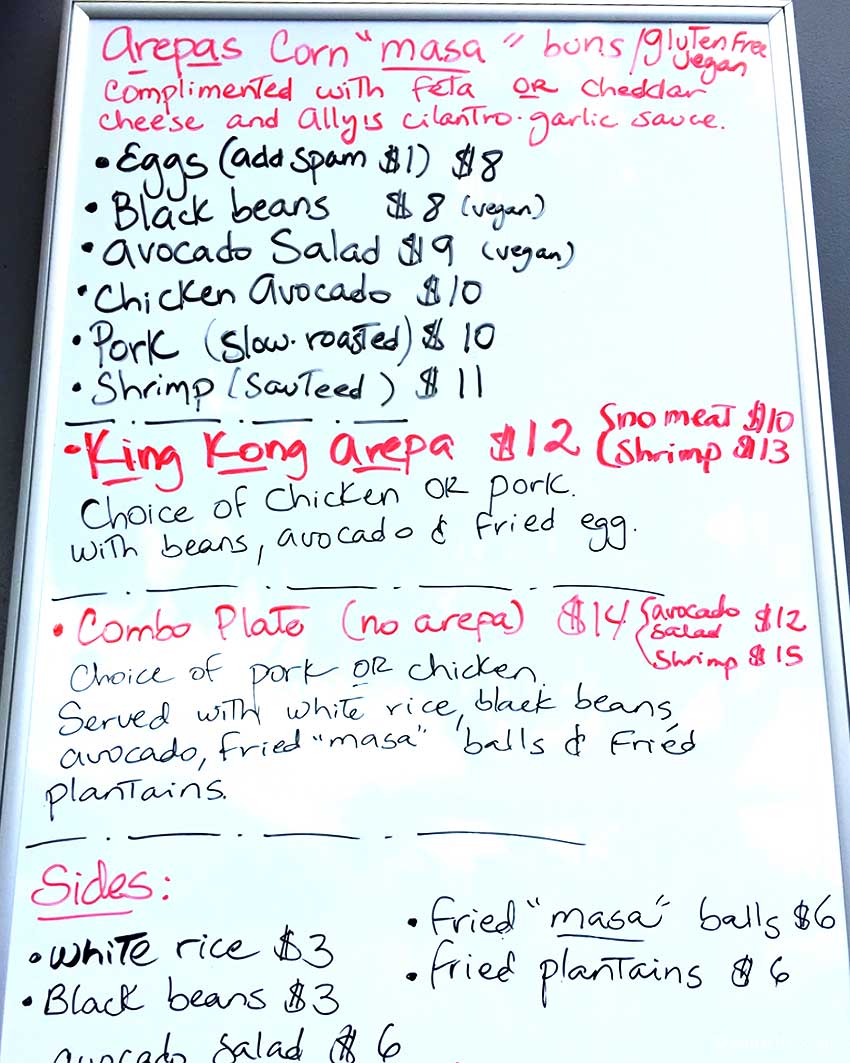 Arepas Corn "masa" buns/gluten free
vegan
complimented with feta OR cheddar
cheese and Ally's cilantro-garlic sauce.
• Eggs (add spam $1) $8
• Black beans $8 (vegan)
• avocado Salad $9 (vegan)
• Chicken avocado $10
• Pork (slow-roasted) $10
• Shrimp (sauteed) $11
• King Kong arepa $12 {no meat $10
shrimp $13
Choice of chicken OR pork.
with beans, avocado & fried egg.
• Combo Plate (no arepa) $14 {avocado salad $12
shrimp $15
Choice of pork OR chicken.
Served with white rice, black beans,
avocado, fried "masa" balls & fried
plantains.
Sides:
• white rice $3
• Black beans $3
avocado salad $6
• fried "masa" balls $6
• fried plantains $6